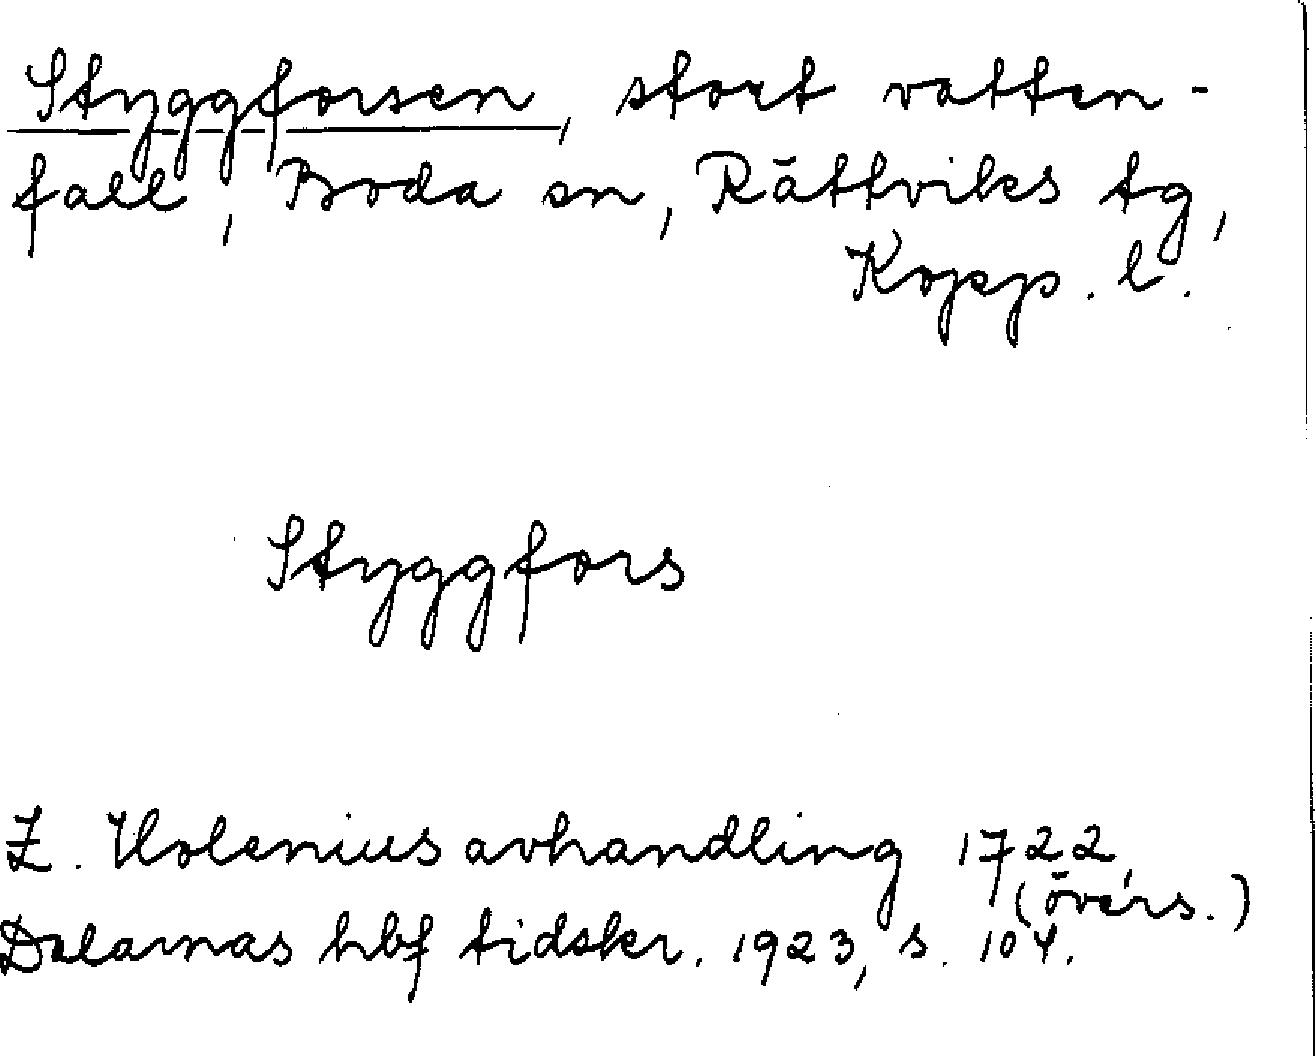 Styggforsen, stort vatten-
fall, Boda sn, Rättviks tg,
Kopp. l.
Styggfors
Z. Holenius avhandling 1722,
(övers.)
Dalarnas hbf tidskr. 1923, s. 104.